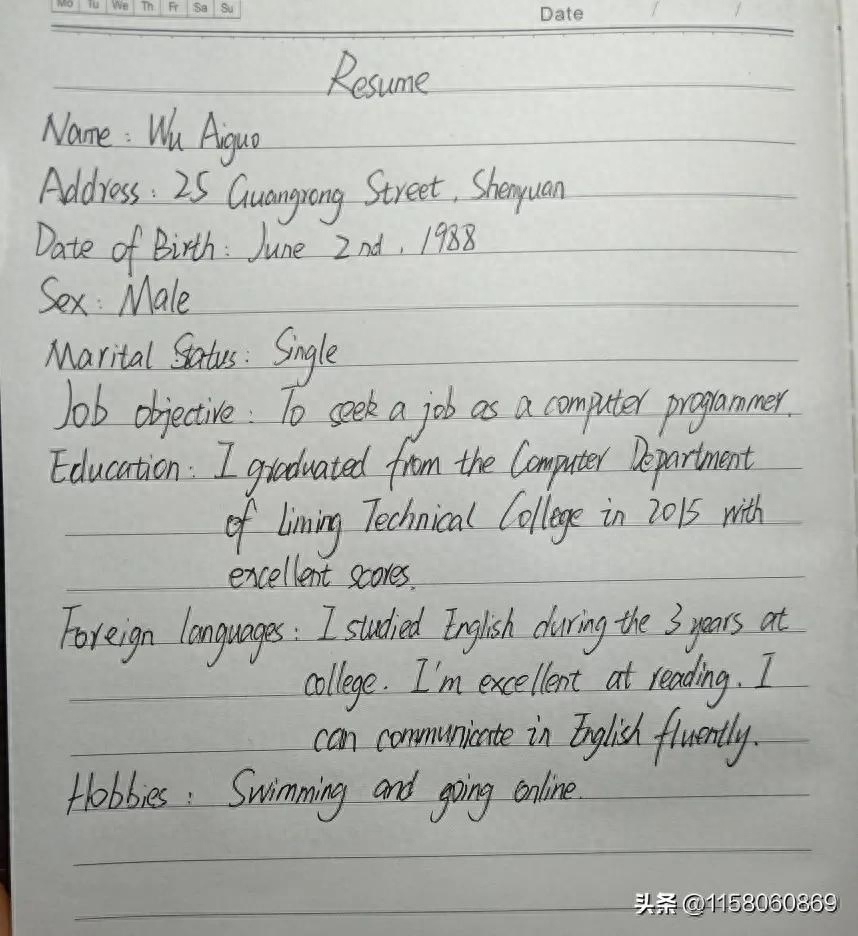 Mo Tu We Th Fr Sa Su
Date / /
Resume
Name: Wu Aiguo
Address: 25 Guangrong Street, Shenyuan
Date of Birth: June 2nd, 1988
Sex: Male
Marital Status: Single
Job objective: To seek a job as a computer programmer.
Education: I graduated from the Computer Department
of Liming Technical College in 2015 with
excellent scores.
Foreign languages: I studied English during the 3 years at
college. I'm excellent at reading. I
can communicate in English fluently.
Hobbies: Swimming and going online.
头条 @1158060869